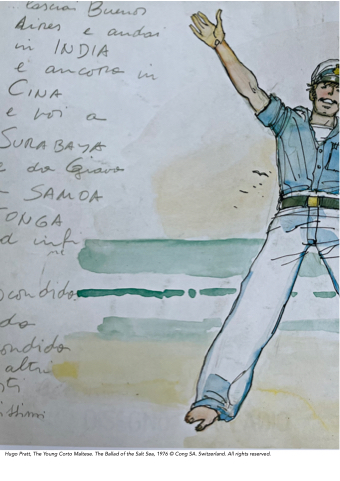 lasciai Buenos
Aires e andai
in INDIA
e ancora in
CINA
e poi a
SURABAYA
e da Giava
SAMOA
TONGA
d infi
ne
scondido
do
ondido
altri
sti
issimi
Hugo Pratt, The Young Corto Maltese. The Ballad of the Salt Sea, 1976 © Cong SA. Switzerland. All rights reserved.